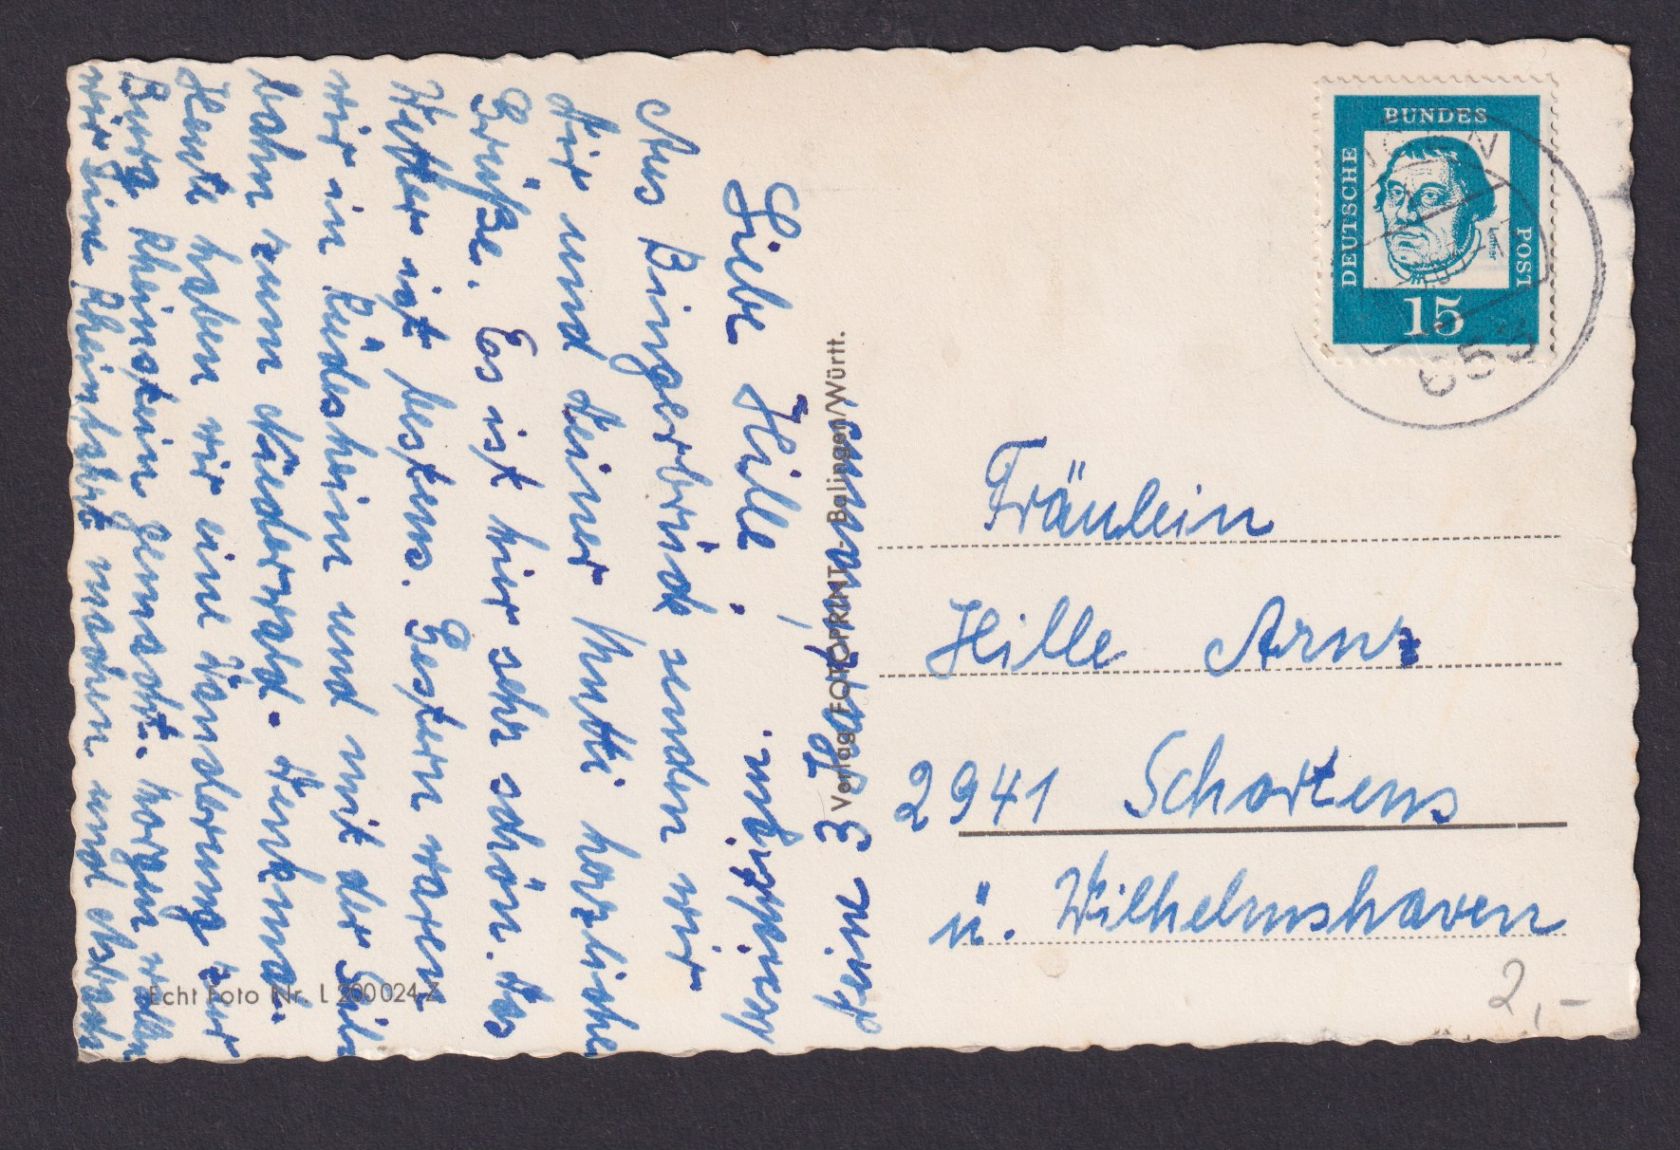 Liebe Hille!
Aus Bingerbrück senden wir
Dir und Deiner Mutti herzliche
Grüße. Es ist hier sehr schön. Das
Wetter ist bestens. Gestern waren
wir in Rüdesheim und mit der Seil-
bahn zum Niederwald-Denkmal.
Heute haben wir eine Wanderung zur
Burg Rheinstein gemacht. Morgen wollen
wir eine Rheinfahrt machen und
Deine 3
Verlag FOTOPRINT Balingen/Württ.
Echt Foto Nr. L 200024 Z
DEUTSCHE
BUNDES
POST
15
653
Fräulein
Hille
2941 Schortens
ü. Wilhelmshaven
2,-